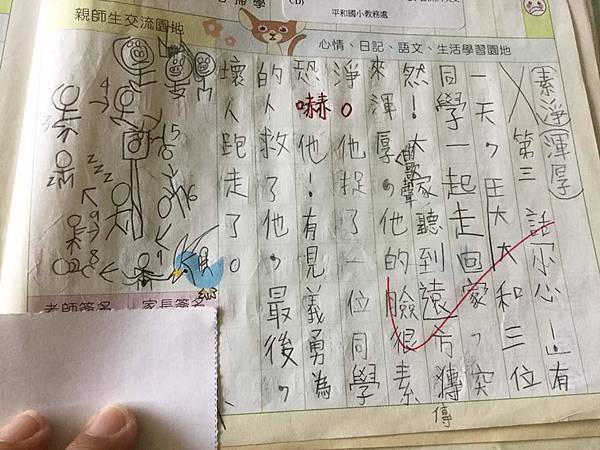 CD)
平和國小教務處
親師生交流園地
心情、日記、語文、生活學習園地
素淨 渾厚
第三話「小心!」有
一天,王大大和三位
同學一起走回家,突
然!大家聽到遠方傳
來渾厚的歌聲,他的臉很素
淨。他捉了一位同學
恐嚇他!有見義勇為
的人救了他,最後,
壞人跑走了。
老師簽名
家長簽名